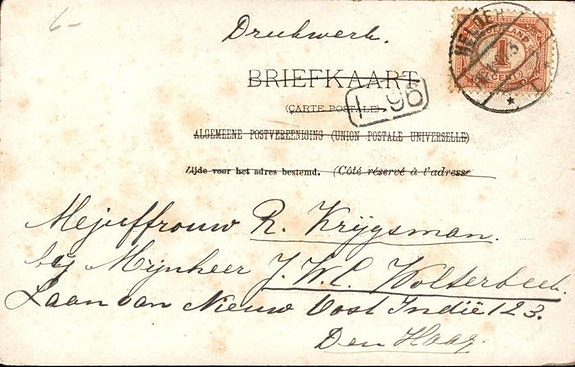 6-
Drukwerk.
NEDERLAND
1
CENT
HELDER
BRIEFKAART
(CARTE POSTALE)
1 96
ALGEMEENE POSTVEREENIGING (UNION POSTALE UNIVERSELLE)
Zijde voor het adres bestemd. (Côté réservé à l'adresse
Mejuffrouw R. Krijgsman.
bij Mijnheer J. W. C. Wolterbeek.
Laan van Nieuw Oost Indië 123.
Den Haag.